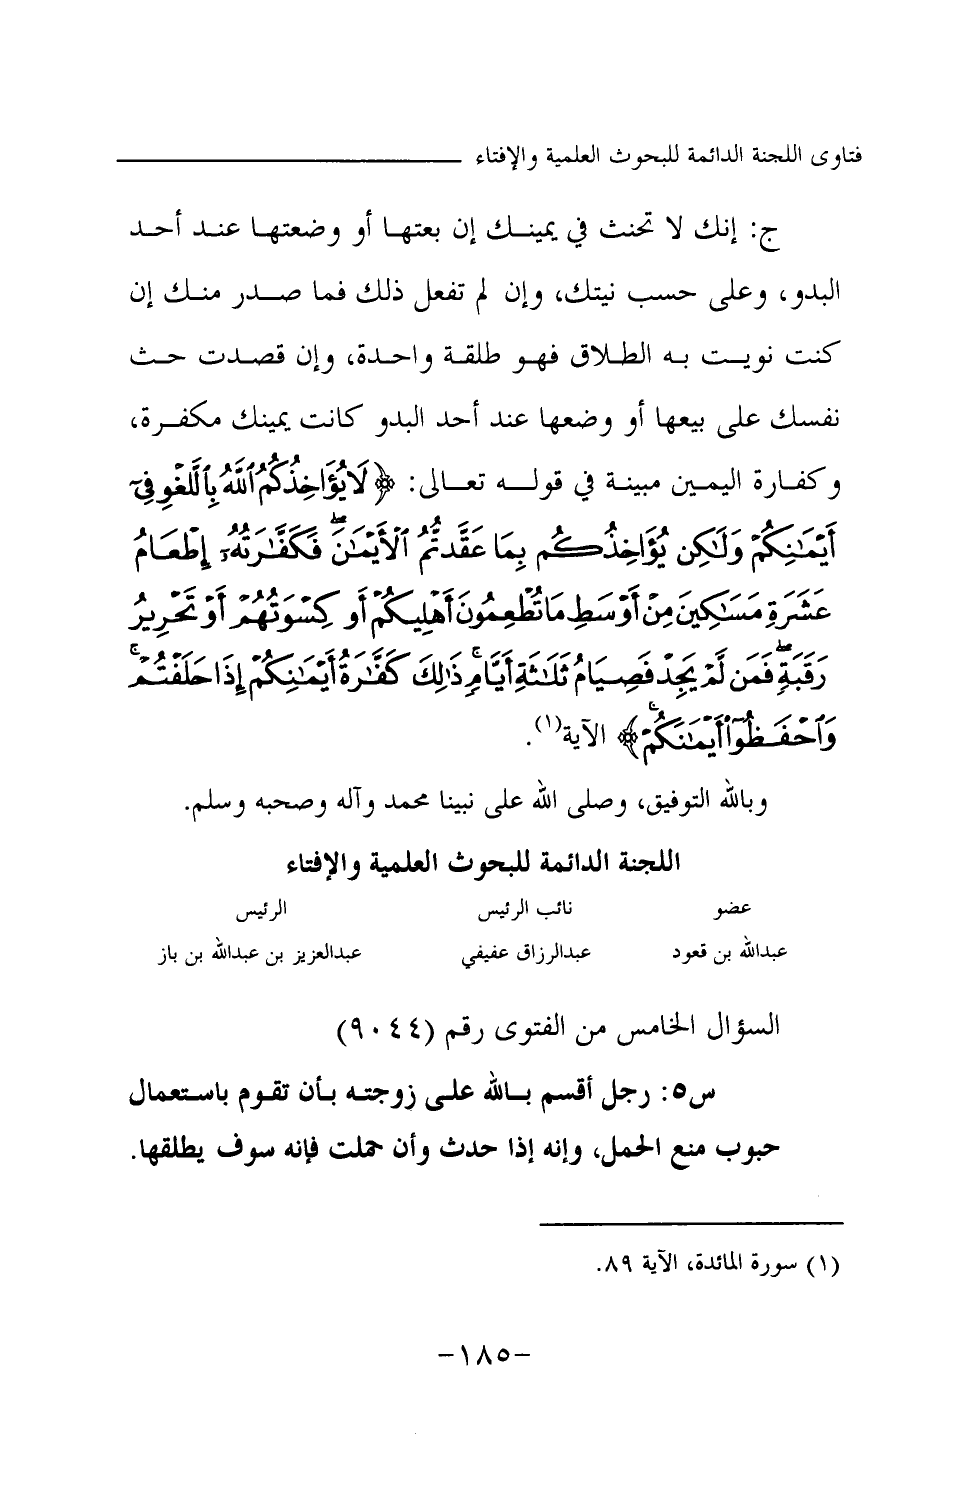 فتاوى اللجنة الدائمة للبحوث العلمية والإفتاء
ج: إنك لا تحنث في يمينك إن بعتها أو وضعتها عند أحد
البدو، وعلى حسب نيتك، وإن لم تفعل ذلك فما صدر منك إن
كنت نويت به الطلاق فهو طلقة واحدة، وإن قصدت حث
نفسك على بيعها أو وضعها عند أحد البدو كانت يمينك مكفرة،
وكفارة اليمين مبينة في قوله تعالى: ﴿لَا يُؤَاخِذُكُمُ ٱللَّهُ بِٱللَّغْوِ فِىٓ
أَيْمَـٰنِكُمْ وَلَـٰكِن يُؤَاخِذُكُم بِمَا عَقَّدتُّمُ ٱلْأَيْمَـٰنَ ۖ فَكَفَّـٰرَتُهُۥٓ إِطْعَامُ
عَشَرَةِ مَسَـٰكِينَ مِنْ أَوْسَطِ مَا تُطْعِمُونَ أَهْلِيكُمْ أَوْ كِسْوَتُهُمْ أَوْ تَحْرِيرُ
رَقَبَةٍ ۖ فَمَن لَّمْ يَجِدْ فَصِيَامُ ثَلَـٰثَةِ أَيَّامٍ ۚ ذَٰلِكَ كَفَّـٰرَةُ أَيْمَـٰنِكُمْ إِذَا حَلَفْتُمْ ۚ
وَٱحْفَظُوٓا۟ أَيْمَـٰنَكُمْ ۚ﴾ الآية(١).
وبالله التوفيق، وصلى الله على نبينا محمد وآله وصحبه وسلم.
اللجنة الدائمة للبحوث العلمية والإفتاء
عضو نائب الرئيس الرئيس
عبدالله بن قعود عبدالرزاق عفيفي عبدالعزيز بن عبدالله بن باز
السؤال الخامس من الفتوى رقم (٩٠٤٤)
س٥: رجل أقسم بالله على زوجته بأن تقوم باستعمال
حبوب منع الحمل، وإنه إذا حدث وأن حملت فإنه سوف يطلقها.
(١) سورة المائدة، الآية ٨٩.
-١٨٥-